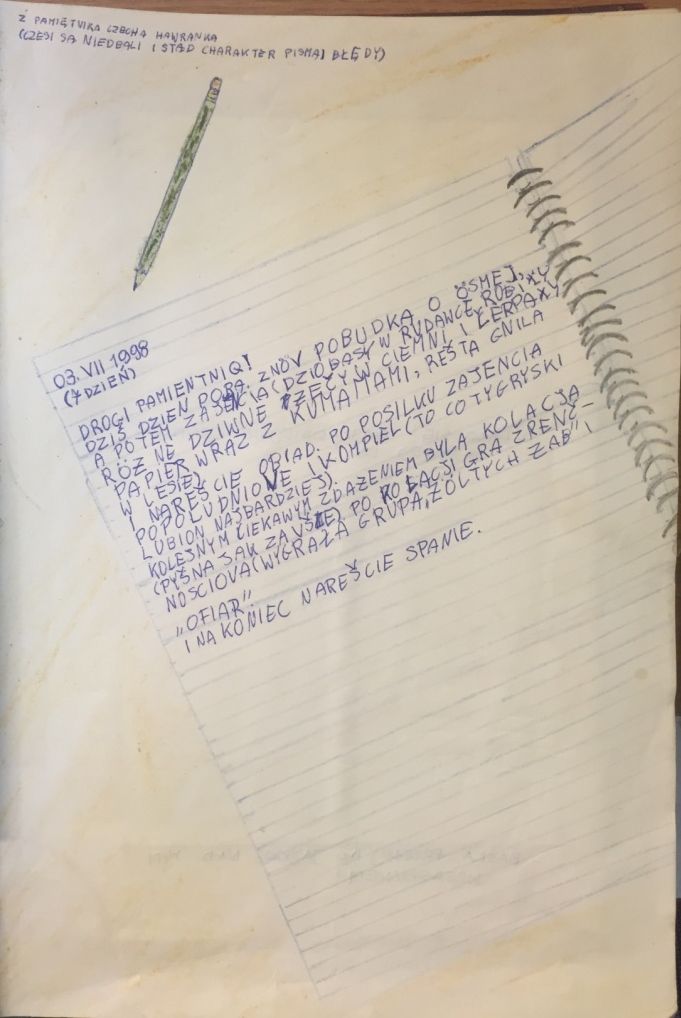 Z PAMIĘTNIKA CZECHA HAWRANKA
(CZESI SĄ NIEDBALI I STĄD CHARAKTER PISMA I BŁĘDY)
03.VII 1998
(7 DZIEŃ)
DROGI PAMIENTNIQ!
DZIŚ DZIEŃ PORA ZNÓV POBUDKA O ÓSMEJ,
A POTEM ZAJENCIA (DZIOBASY W RUDAWCE ROBIXY
RÓŻNE DZIWNE ŻECZY W CIEMNI I CZERPAXY
PAPIER WRAZ Z KUMAMAMI, RESTA GNILA
W LESIE).
I NAREŚCIE OPIAD. PO POSILKU ZAJENCIA
POPOLUDNIOVE I KOMPIEL (TO CO TYGRYSKI
LUBION NAJBARDZIEJ).
KOLEJNYM CIEKAWYM ZDAŻENIEM BYLA KOLACJA
(PYŻNA JAK ZAVSZE) PO KOLACJI GRA ZRENCZ-
NOŚCIOVA (WYGRAŁA GRUPA „ŻÓLTYCH ŻAB" I
„OFIAR".
I NA KONIEC NAREŠCIE SPANIE.